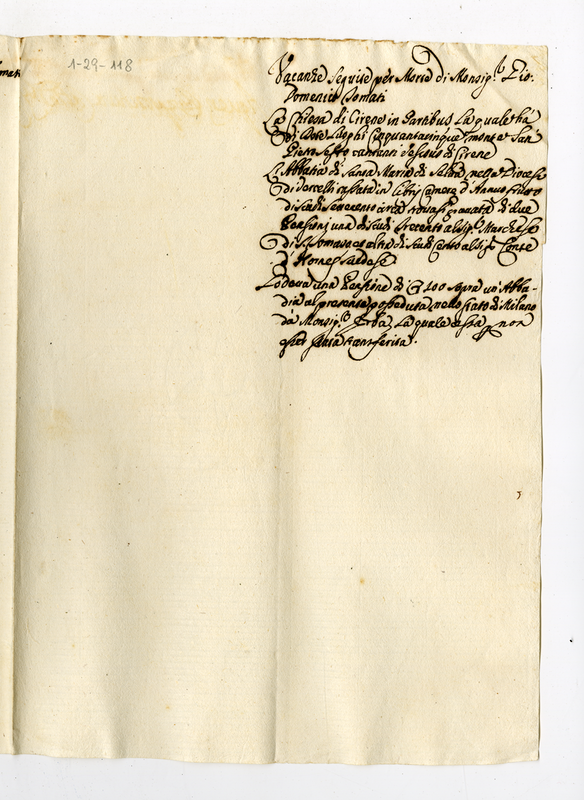 mati
1-29-118
Vacanze Seguite per Morte di Monsig.r Gio:
Domenico Tomati
La Chiesa di Cirene in Partibus La quale há
di Dote Luoghi Cinquantacinque monte San
Pietro Sesto cantanti Vescovo di Cirene
L'Abbatia di Santa Maria di nella Diocese
di Vercelli in Libris Camere d'Annuo frutto
di scudi Settecento circa gravata di due
Pensioni una di scudi trecento al Sig.r Marchese
di S. Tomaso e altra di scudi Cento al Sig.r Conte
Godeva una Pensione di 100 sopra un'Abba-
dia al presente posseduta nello stato di Milano
da Monsig.r Erba, La quale cessa, non
esser stata transferita.